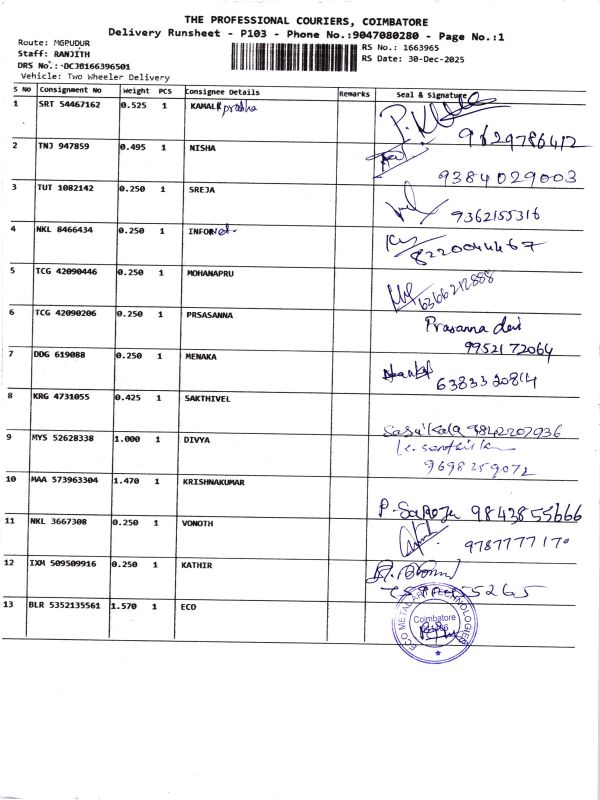 THE PROFESSIONAL COURIERS, COIMBATORE
Delivery Runsheet - P103 - Phone No.:9047080280 - Page No.:1
Route: MGPUDUR
RS No.: 1663965
Staff: RANJITH
RS Date: 30-Dec-2025
DRS No.: DCJB166396501
Vehicle: Two Wheeler Delivery
S No Consignment No Weight PCS Consignee Details Remarks Seal & Signature
1 SRT 54467162 0.525 1 KAMALK prabha 9629786412
2 TNJ 947859 0.495 1 NISHA 9384029003
3 TUT 1082142 0.250 1 SREJA 9362155316
4 NKL 8466434 0.250 1 INFO 8220044467
5 TCG 42090446 0.250 1 MOHANAPRU 6366212888
6 TCG 42090206 0.250 1 PRSASANNA Prasanna devi
9952172064
7 DDG 619088 0.250 1 MENAKA 6383320814
8 KRG 4731055 0.425 1 SAKTHIVEL Sasikala 9842207936
9 MYS 52628338 1.000 1 DIVYA
9698259072
10 MAA 573963304 1.470 1 KRISHNAKUMAR P. Saroja 9843855666
11 NKL 3667308 0.250 1 VONOTH 9787777170
12 IXM 509509916 0.250 1 KATHIR
13 BLR 5352135561 1.570 1 ECO
Coimbatore